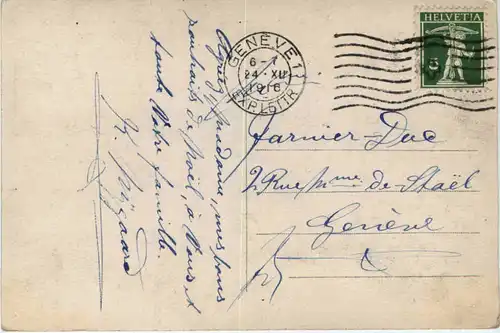 GENÈVE 1
6-7
24·XII
1916
EXP. LETTR.
HELVETIA
5
Agréez, Madame, mes bons
souhaits de Noël, à Vous et
toute Votre famille.
Tarnier-Duc
2 Rue Mme de Staël
Genève